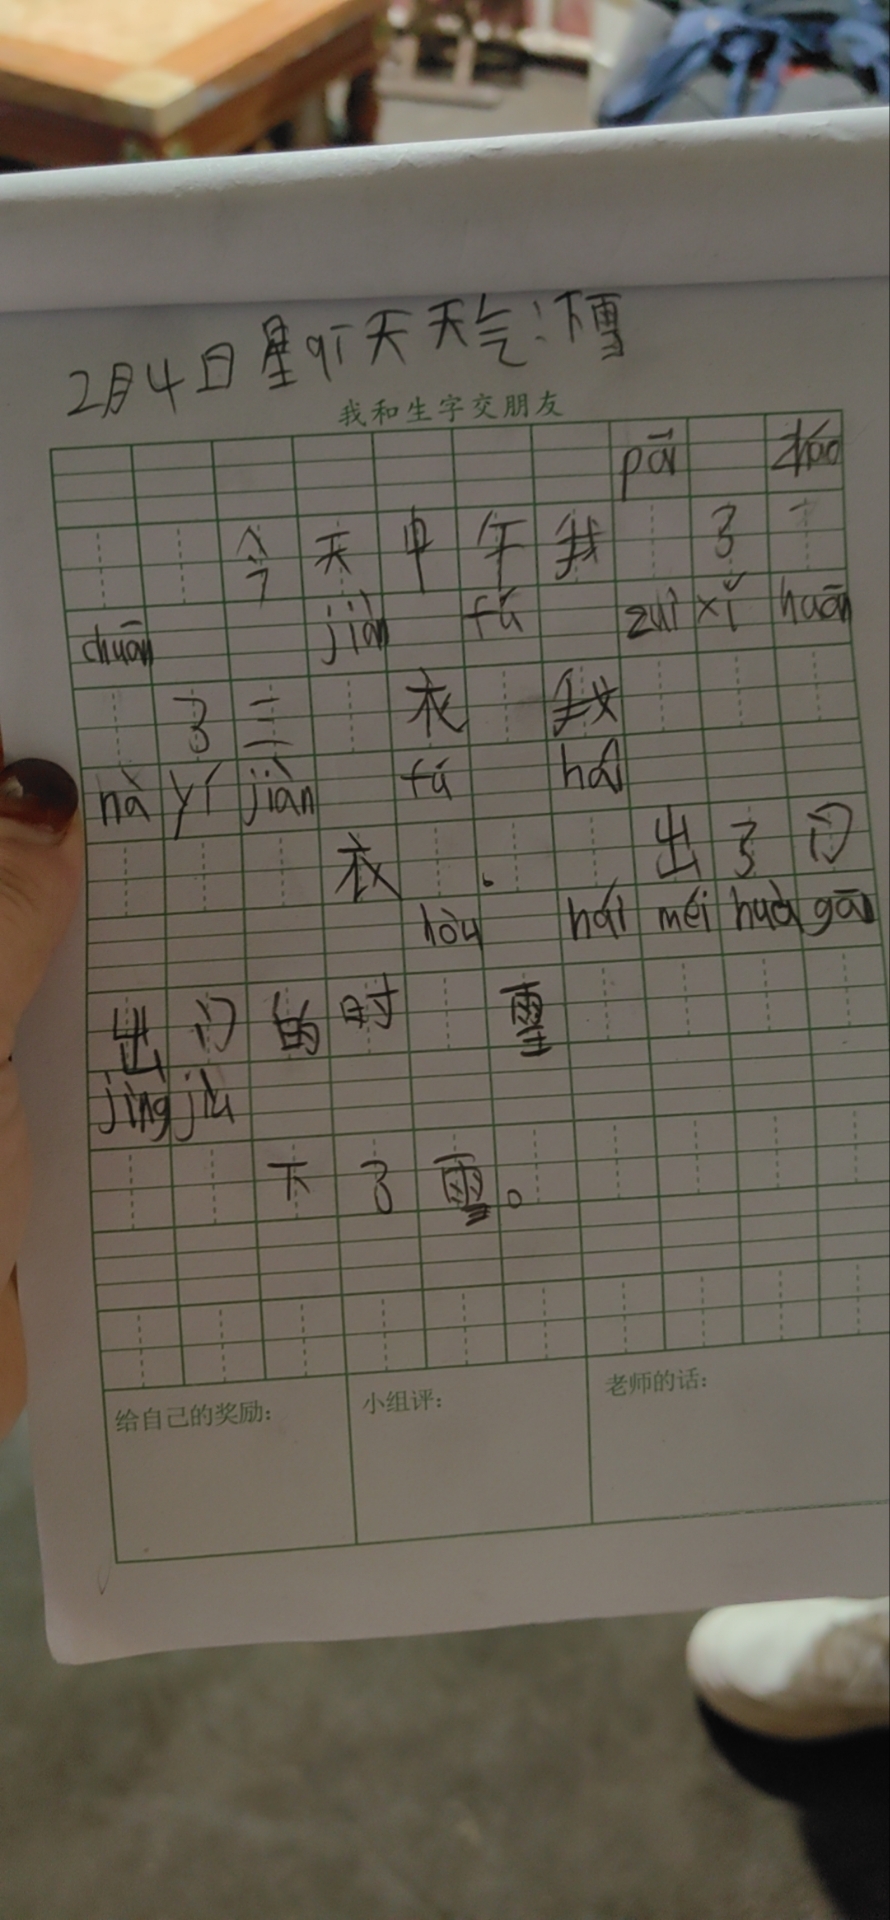 2月4日星qī天天气:下雪
我和生字交朋友
pāi zhào
今天中午我 了
chuān jiàn fú zuì xǐ huān
了三 衣 我
nà yí jiàn fú
衣 . 出了门
hòu hái méi huà gāi
出门的时 雪
jìng jiù
下了雪。
给自己的奖励:
小组评:
老师的话: